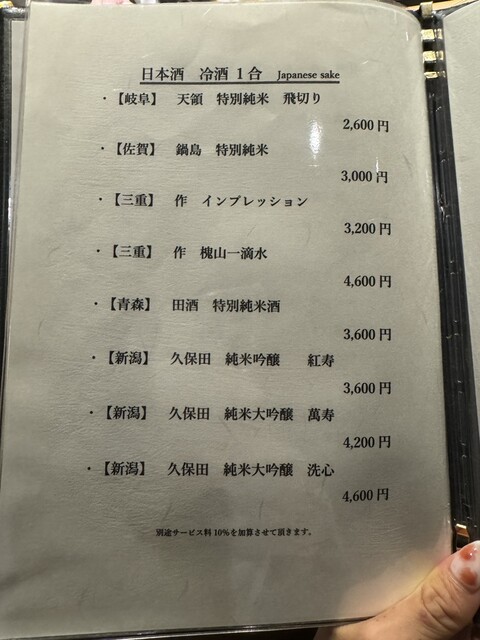 日本酒　冷酒 1 合　Japanese sake
・【岐阜】　天領　特別純米　飛切り
2,600 円
・【佐賀】　鍋島　特別純米
3,000 円
・【三重】　作　インプレッション
3,200 円
・【三重】　作　槐山一滴水
4,600 円
・【青森】　田酒　特別純米酒
3,600 円
・【新潟】　久保田　純米吟醸　　紅寿
3,600 円
・【新潟】　久保田　純米大吟醸　萬寿
4,200 円
・【新潟】　久保田　純米大吟醸　洗心
4,600 円
別途サービス料 10%を加算させて頂きます。